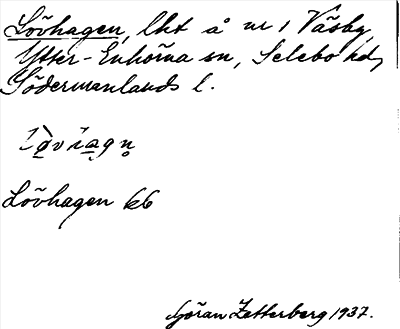 Lövhagen, lht å nr 1 Väsby,
Ytter-Enhörna sn, Selebo hd,
Södermanlands l.
Lövhagen kb
Göran Zetterberg 1937.